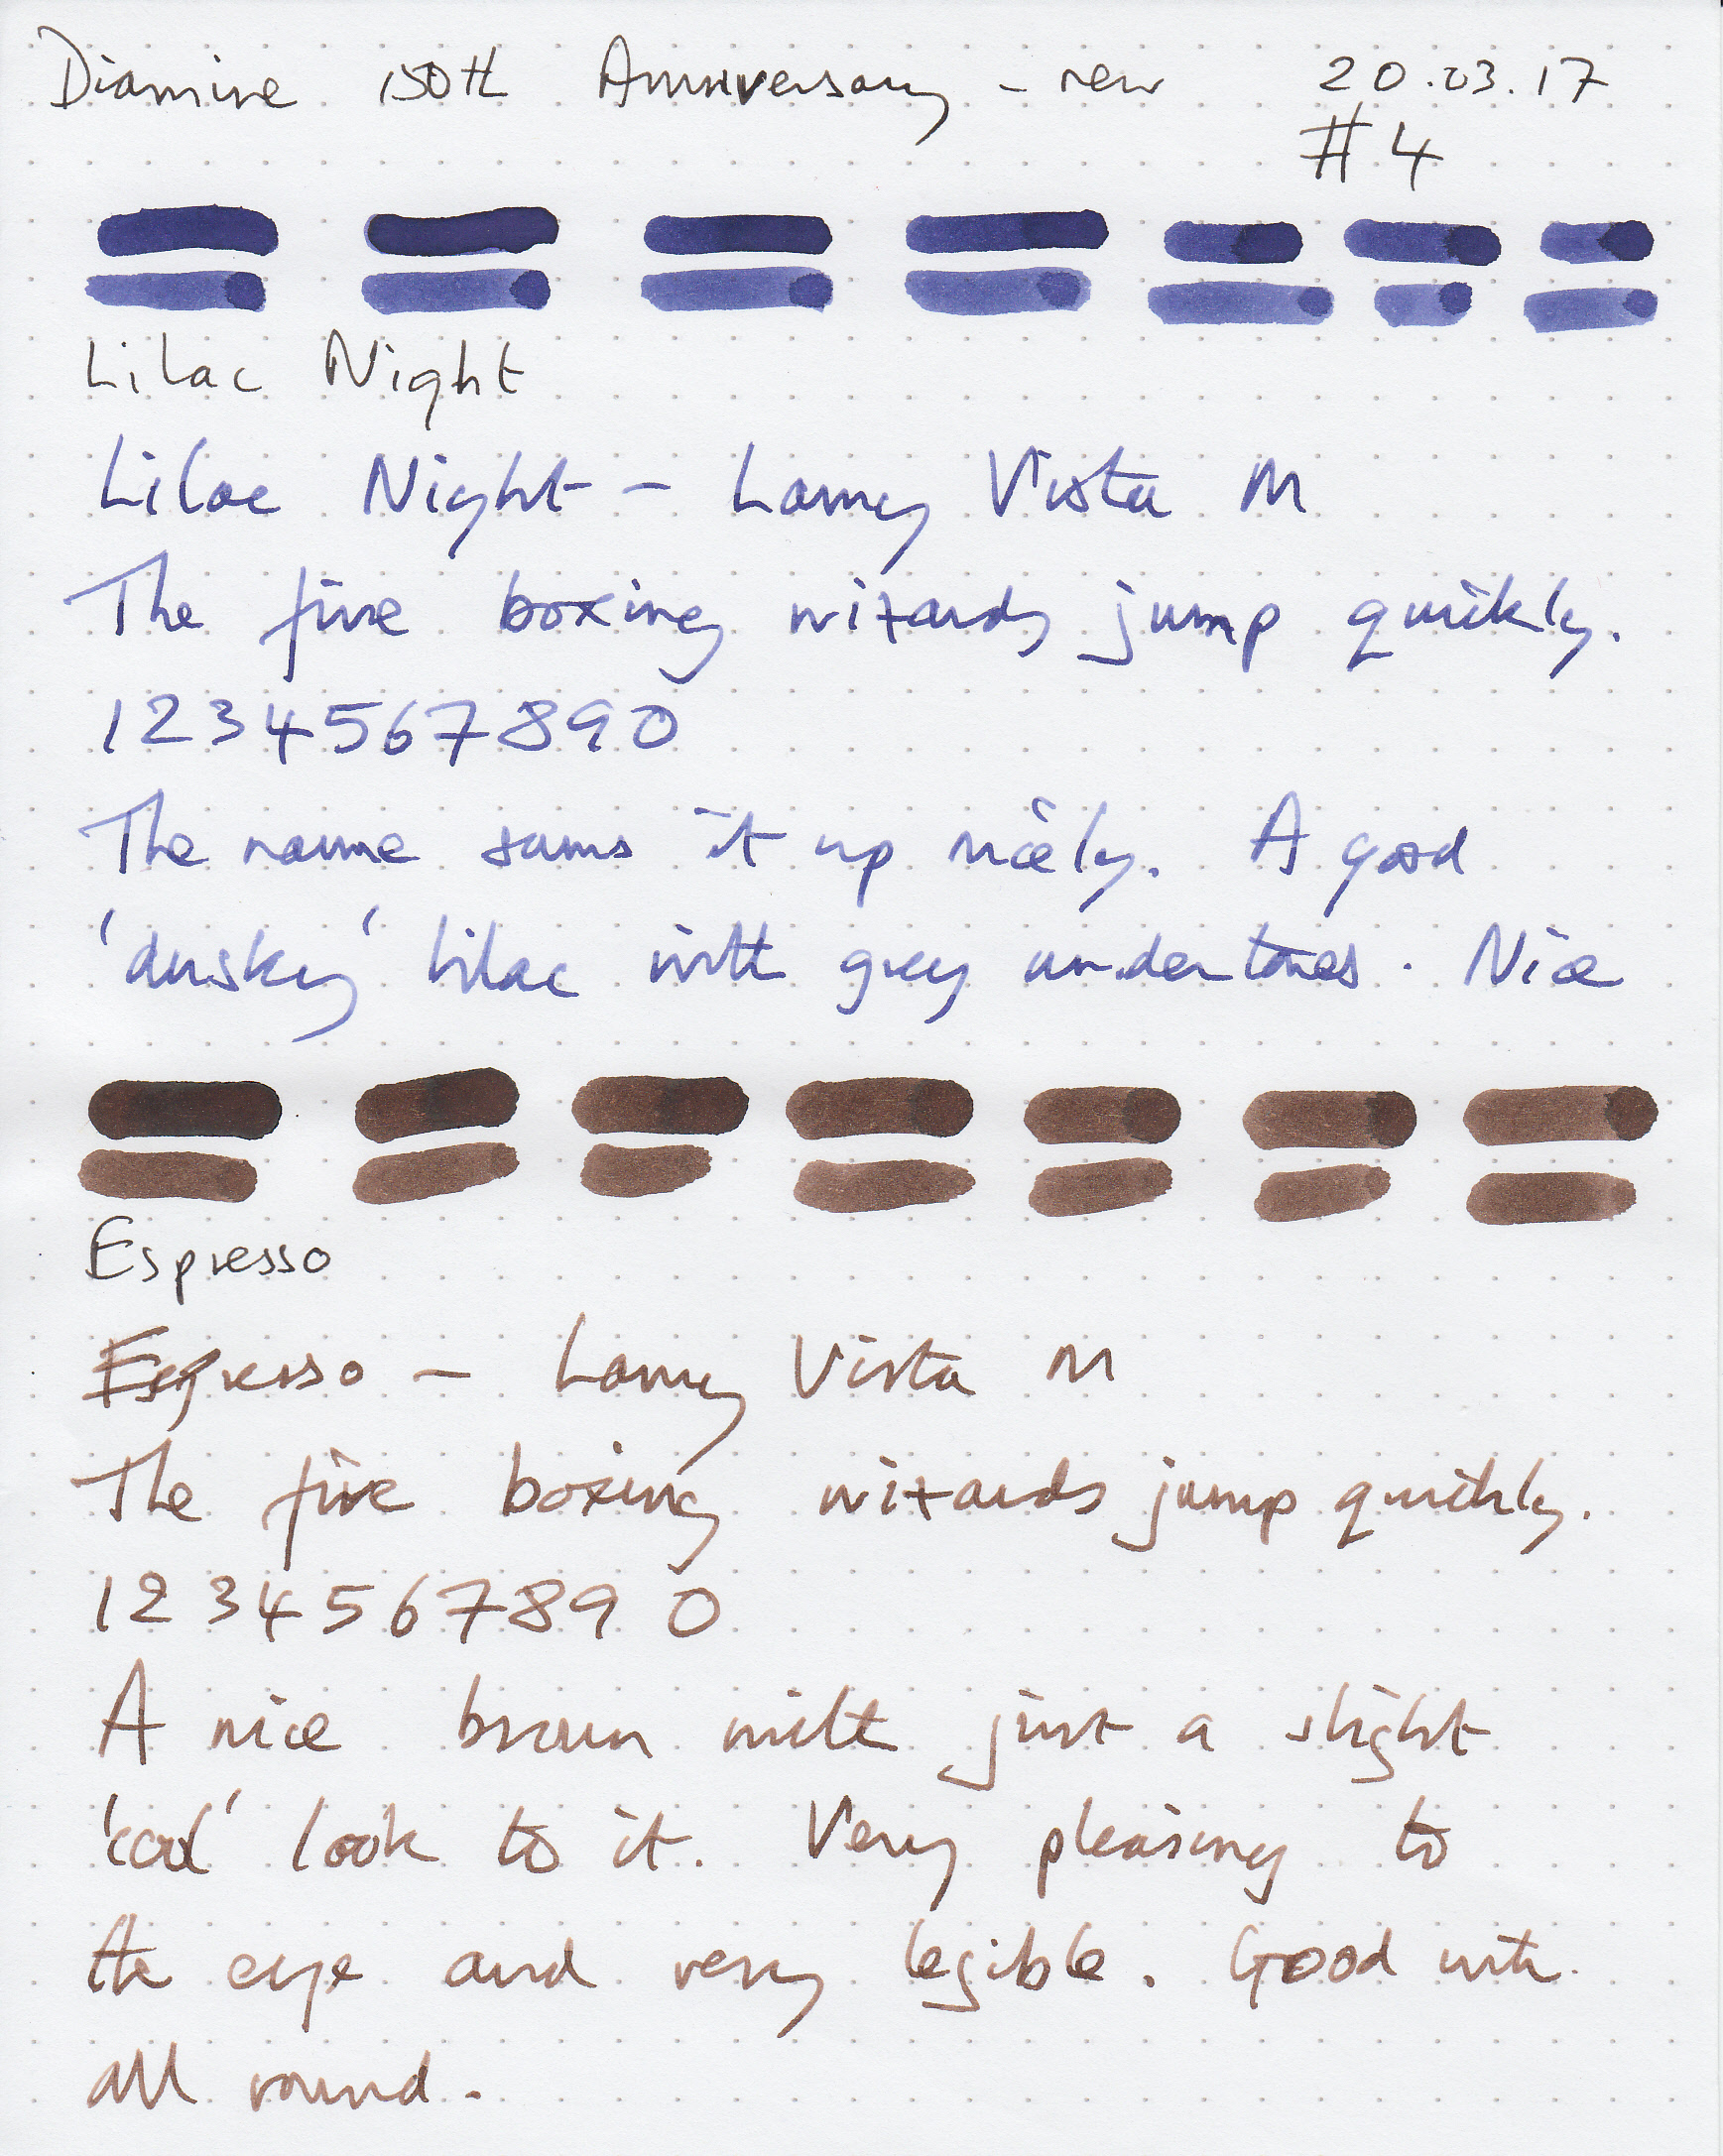 Diamine 150th Anniversary - new 20.03.17
#4
Lilac Night
Lilac Night - Lamy Vista M
The five boxing wizards jump quickly.
1234567890
The name sums it up nicely. A good
'dusky' lilac with grey undertones. Nice
Espresso
Espresso - Lamy Vista M
The five boxing wizards jump quickly.
1234567890
A nice brown with just a slight
'cool' look to it. Very pleasing to
the eye and very legible. Good
all round.